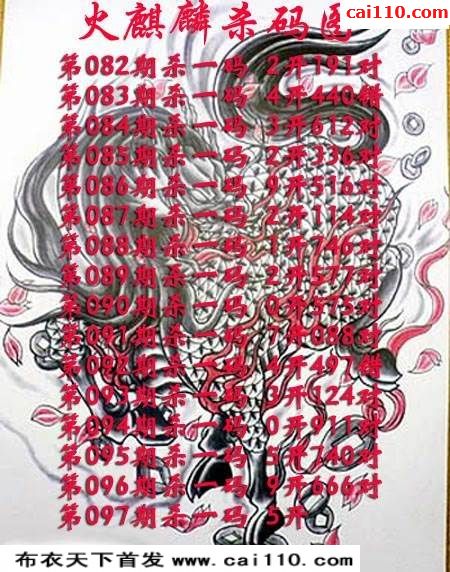 cai110.com
火麒麟杀码图
第082期杀一码 2开191对
第083期杀一码 4开440错
第084期杀一码 3开612对
第085期杀一码 2开336对
第086期杀一码 9开516对
第087期杀一码 2开114对
第088期杀一码 1开746对
第089期杀一码 2开577对
第090期杀一码 0开575对
第091期杀一码 7开088对
第092期杀一码 4开497错
第093期杀一码 3开124对
第094期杀一码 0开911对
第095期杀一码 5开740对
第096期杀一码 9开666对
第097期杀一码 5开
布衣天下首发 www.cai110.com